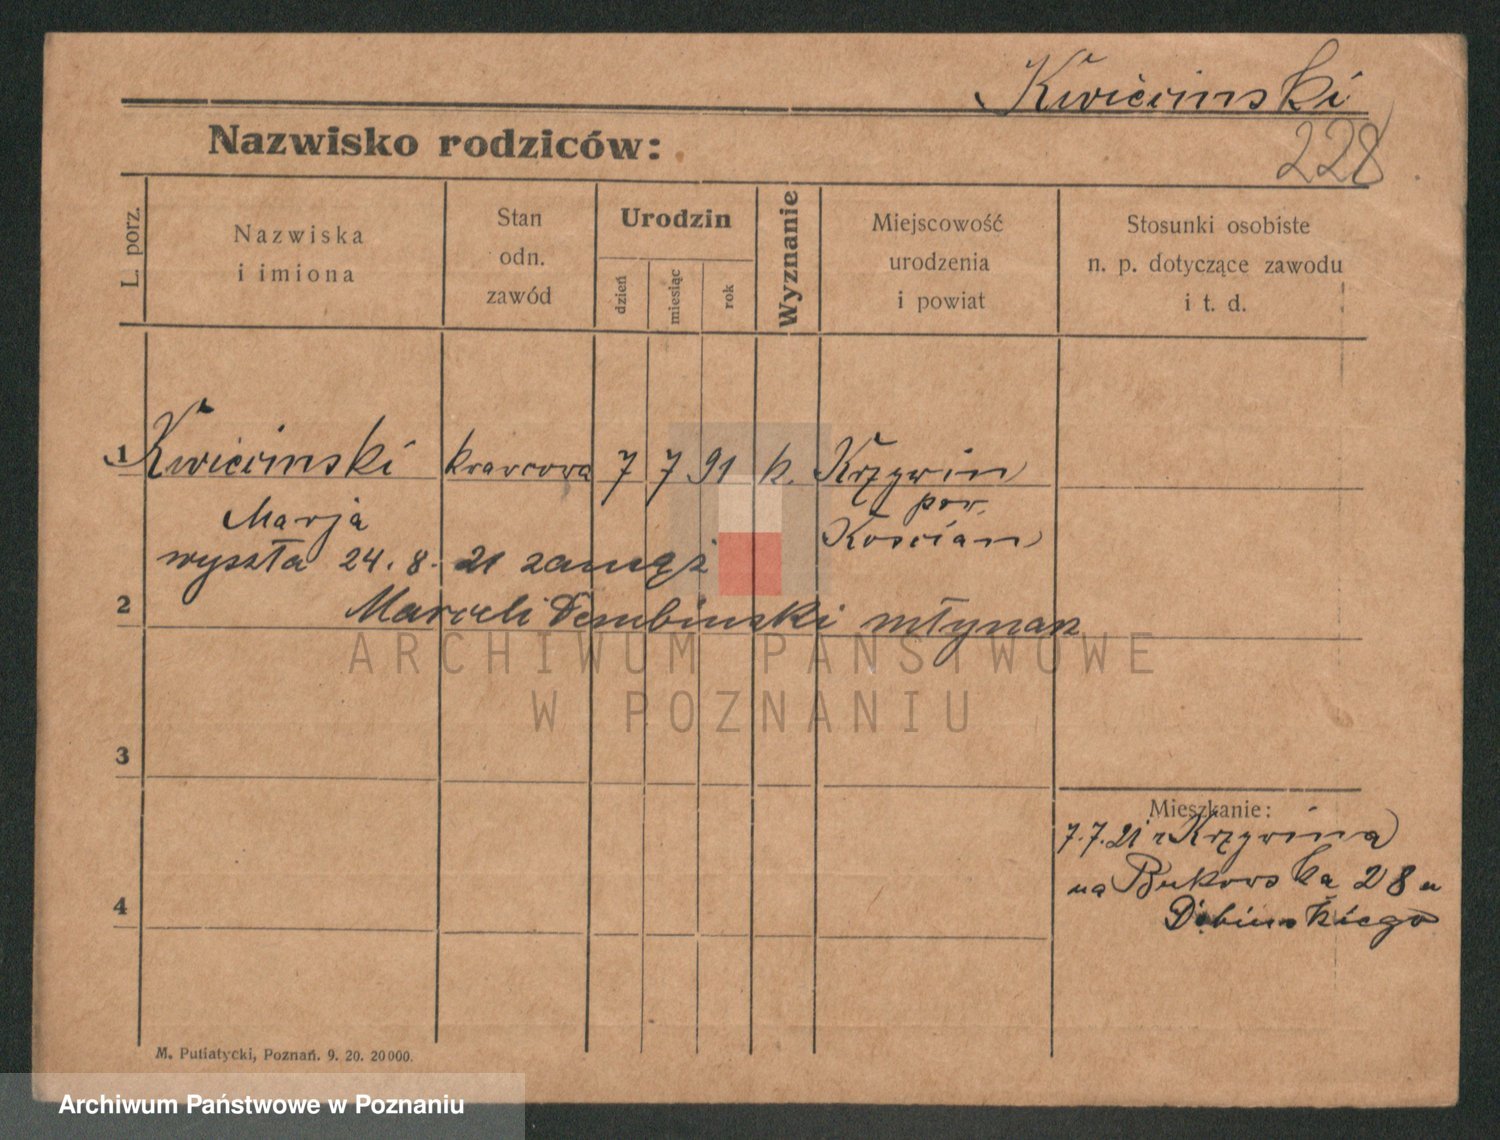 Kwiciński
228
Nazwisko rodziców:
L. porz.
Nazwiska
i imiona
Stan
odn.
zawód
Urodzin
dzień
miesiąc
rok
Wyznanie
Miejscowość
urodzenia
i powiat
Stosunki osobiste
n. p. dotyczące zawodu
i t. d.
1 Kwiciński krawcowa 7 7 91 k. Krzywin
Marja pow.
Kościan
wyszła 24. 8. 21 zamąż
2 Marceli Dembinski młynarz
ARCHIWUM PAŃSTWOWE
W POZNANIU
3
Mieszkanie:
7.7.21 z Krzywina
na Bukowska 28 u
4
M. Putiatycki, Poznań. 9. 20. 20000.
Archiwum Państwowe w Poznaniu